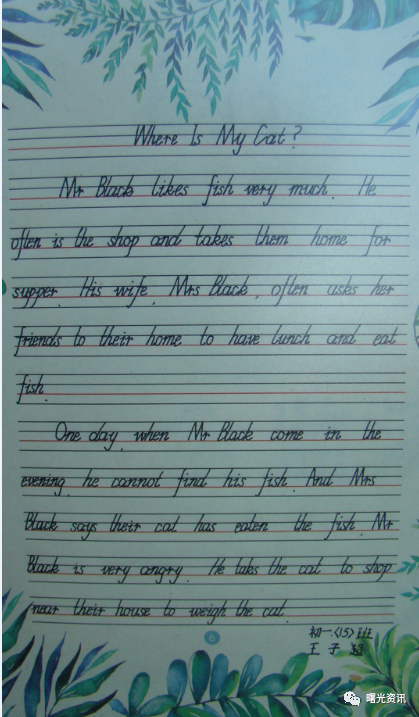 Where Is My Cat?
Mr Black likes fish very much. He
often is the shop and takes them home for
supper. His wife, Mrs Black, often asks her
friends to their home to have lunch and eat
fish.
One day, when Mr Black come in the
evening, he cannot find his fish. And Mrs
Black says their cat has eaten the fish. Mr
Black is very angry. He taks the cat to shop
near their house to weigh the cat.
初一(15)班
王子
6
曙光资讯